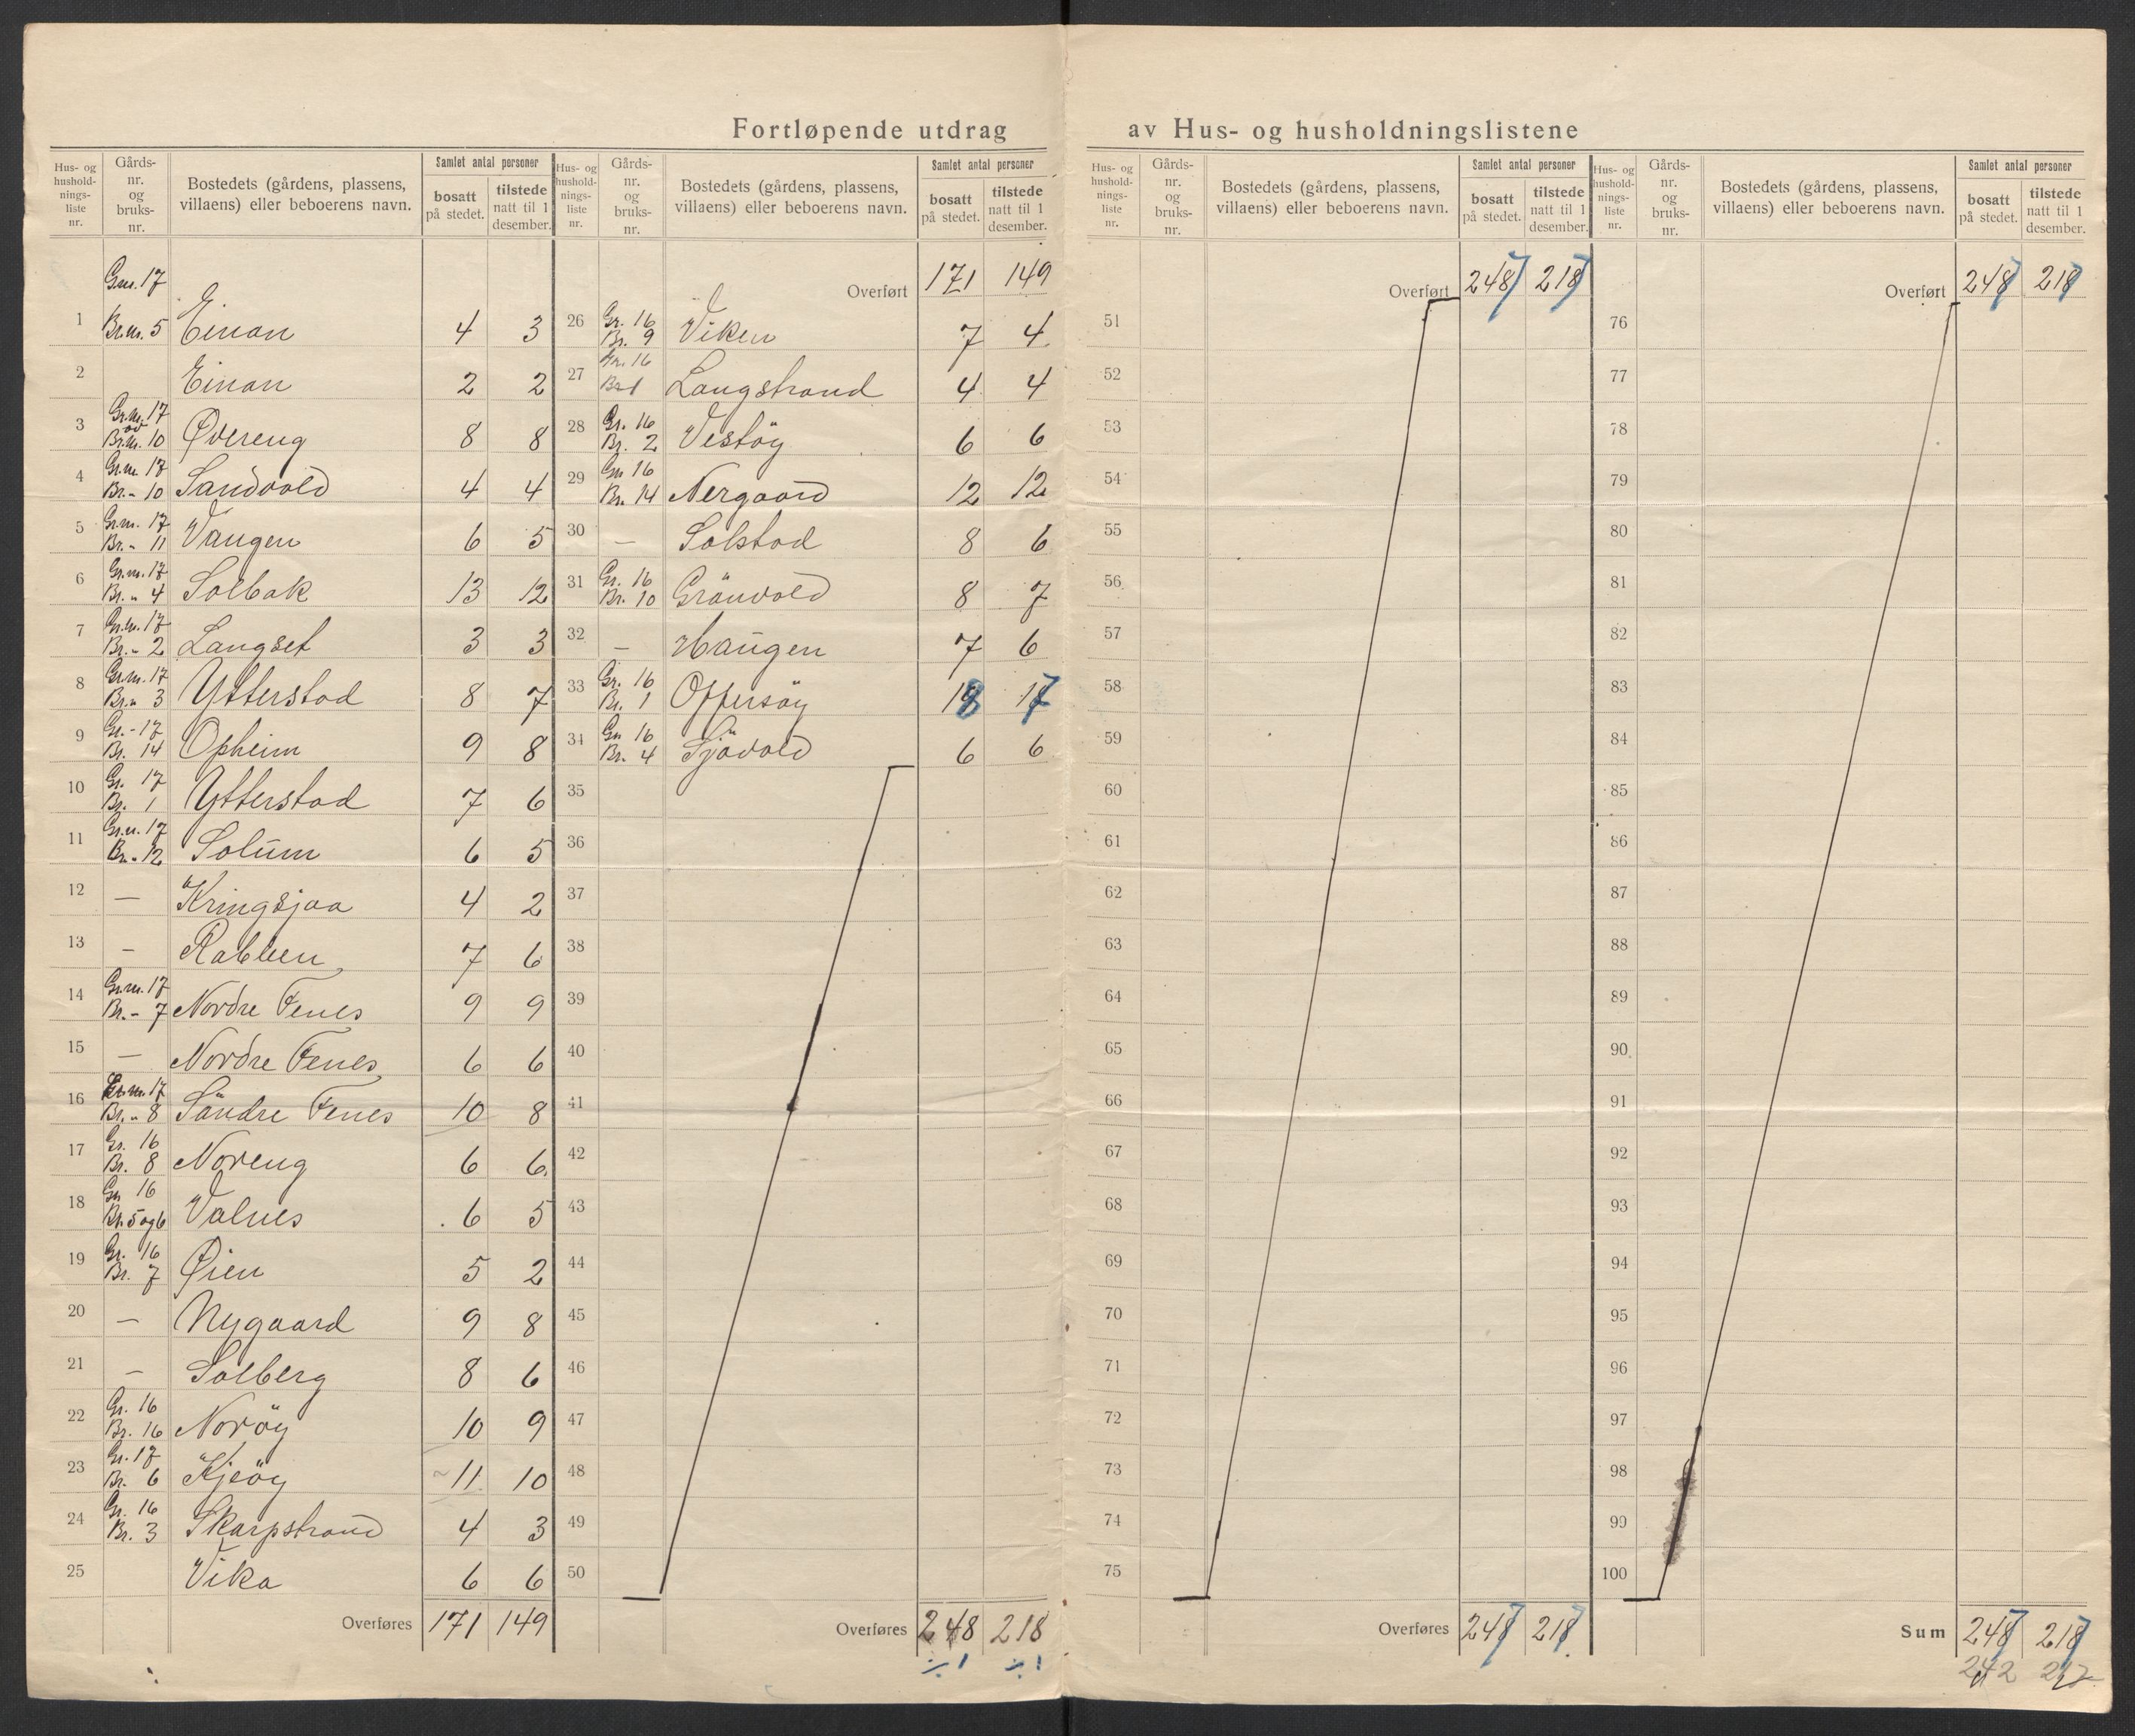 Fortløpende utdrag av Hus- og husholdningslistene
Hus- og hushold- nings- liste nr. | Gårds- nr. og bruks- nr. | Bostedets (gårdens, plassens, villaens) eller beboerens navn. | Samlet antal personer | bosatt på stedet. | tilstede natt til 1 desember.
1 Gnr. 17 Br.nr. 5 Einan 4 3
2 Einan 2 2
3 Gr.nr. 17 Br.nr. 10 Øvereng 8 8
4 Gr.nr. 17 Br. - 10 Sandvold 4 4
5 Gr.nr. 17 Br. - 11 Vangen 6 5
6 Gr.nr. 17 Br. - 4 Solbak 13 12
7 Gr.nr. 17 Br. - 2 Langset 3 3
8 Gr.nr. 17 Br. - 3 Ytterstad 8 7
9 Gr. - 17 Br. 14 Opheim 9 8
10 Gr. 17 Br. 1 Ytterstad 7 6
11 Gr.n. 17 Br. - 12 Solum 6 5
12 — Kringsjaa 4 2
13 — Rabben 7 6
14 Gr.nr. 17 Br. - 7 Nordre Fenes 9 9
15 — Nordre Fenes 6 6
16 Gr.nr. 17 Br. - 8 Söndre Fenes 10 8
17 Gr. 16 Br. 8 Noreng 6 6
18 Gr. 16 Br. 5 og 6 Valnes 6 5
19 Gr. 16 Br. 7 Øien 5 2
20 — Nygaard 9 8
21 — Solberg 8 6
22 Gr. 16 Br. 16 Noröy 10 9
23 Gr. 17 Br. 6 Kjeöy 11 10
24 Gr. 16 Br. 3 Skarpstrand 4 3
25 Vika 6 6
Overføres 171 149
Hus- og hushold- nings- liste nr. | Gårds- nr. og bruks- nr. | Bostedets (gårdens, plassens, villaens) eller beboerens navn. | Samlet antal personer | bosatt på stedet. | tilstede natt til 1 desember.
Overført 171 149
26 Gr. 16 Br. 9 Viken 7 4
27 Gr. 16 Br. 1 Langstrand 4 4
28 Gr. 16 Br. 2 Vestöy 6 6
29 Gr. 16 Br. 14 Nergaard 12 12
30 — Solstad 8 6
31 Gr. 16 Br. 10 Grönvold 8 7
32 — Haugen 7 6
33 Gr. 16 Br. 1 Offersöy 18 17
34 Gr. 16 Br. 4 Sjövold 6 6
35
36
37
38
39
40
41
42
43
44
45
46
47
48
49
50
Overføres 248 218
÷1 ÷1
Hus- og hushold- nings- liste nr. | Gårds- nr. og bruks- nr. | Bostedets (gårdens, plassens, villaens) eller beboerens navn. | Samlet antal personer | bosatt på stedet. | tilstede natt til 1 desember.
Overført 247 217
51
52
53
54
55
56
57
58
59
60
61
62
63
64
65
66
67
68
69
70
71
72
73
74
75
Overføres 247 217
Hus- og hushold- nings- liste nr. | Gårds- nr. og bruks- nr. | Bostedets (gårdens, plassens, villaens) eller beboerens navn. | Samlet antal personer | bosatt på stedet. | tilstede natt til 1 desember.
Overført 247 217
76
77
78
79
80
81
82
83
84
85
86
87
88
89
90
91
92
93
94
95
96
97
98
99
100
Sum 247 217
242 217